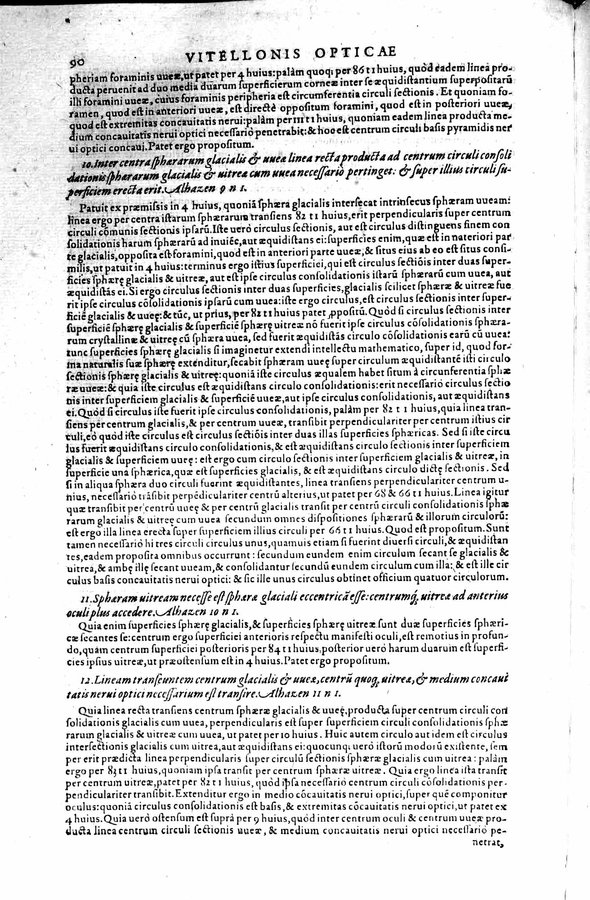 90 VITELLONIS OPTICAE
pheriam foraminis uueæ, ut patet per 4 huius: palàm quoq; per 86 t 1 huius, quòd eadem linea pro-
ducta perueniet ad duo media duarum superficierum corneæ inter se æquidistantium superpositarū
illi foramini uueæ, cuius foraminis peripheria est circumferentia circuli sectionis. Et quoniam fo-
ramen, quod est in anteriori uueæ, est directè oppositum foramini, quod est in posteriori uueæ,
quod est extremitas concauitatis nerui: palàm per 111 t 1 huius, quoniam eadem linea producta me-
dium concauitatis nerui optici necessariò penetrabit: & hoc est centrum circuli basis pyramidis ner
ui optici concaui. Patet ergo propositum.
10. Inter centra sphærarum glacialis & uueæ linea recta producta ad centrum circuli consoli
dationis sphærarum glacialis & uitreæ cum uuea necessariò pertinget: & super illius circuli su-
perficiem erecta erit. Alhazen 9 n 1.
Patuit ex præmissis in 4 huius, quoniā sphæra glacialis intersecat intrinsecus sphæram uueam:
linea ergo per centra istarum sphærarum transiens 82 t 1 huius, erit perpendicularis super centrum
circuli cōmunis sectionis ipsarū. Iste uerò circulus sectionis, aut est circulus distinguens finem con
solidationis harum sphærarū ad inuicē, aut æquidistans ei: superficies enim, quæ est in anteriori par
te glacialis, opposita est foramini, quod est in anteriori parte uueæ, & situs eius ab eo est situs consi-
milis, ut patuit in 4 huius: terminus ergo istius superficiei, qui est circulus sectiōis inter duas super-
ficies sphærę glacialis & uitreæ, aut est ipse circulus consolidationis istarū sphærarū cum uuea, aut
æquidistās ei. Si ergo circulus sectionis inter duas superficies, glacialis scilicet sphæræ & uitreæ fue
rit ipse circulus cōsolidationis ipsarū cum uuea: iste ergo circulus, est circulus sectionis inter super-
ficiē glacialis & uueę: & tūc, ut prius, per 82 t 1 huius patet ꝓpositū. Quòd si circulus sectionis inter
superficiē sphærę glacialis & superficiē sphærę uitreæ nō fuerit ipse circulus cōsolidationis sphæra-
rum crystallinæ & uitreę cū sphæra uuea, sed fuerit æquidistās circulo cōsolidationis earū cū uuea:
tunc superficies sphærę glacialis si imaginetur extendi intellectu mathematico, super id, quod for-
ma naturalis suæ sphærę extenditur, secabit sphæram uueę super circulum æquidistantē isti circulo
sectionis sphærę glacialis & uitreę: quoniā iste circulus æqualem habet situm à circunferentia sphæ
ræ uueæ: & quia iste circulus est æquidistans circulo consolidationis: erit necessariò circulus sectio
nis inter superficiem glacialis & superficiē uueæ, aut ipse circulus consolidationis, aut æquidistans
ei. Quòd si circulus iste fuerit ipse circulus consolidationis, palàm per 82 t 1 huius, quia linea tran-
siens per centrum glacialis, & per centrum uueæ, transibit perpendiculariter per centrum istius cir
culi, eò quòd iste circulus est sectiōis inter duas illas superficies sphæricas. Sed si iste circu
lus fuerit æquidistans circulo consolidationis, & est æquidistans circulo sectionis inter superficiem
glacialis & superficiem uueę: est ergo cum circulo sectionis inter superficiem glacialis & uitreæ, in
superficie una sphærica, quæ est superficies glacialis, & est æquidistans circulo dictę sectionis. Sed
si in aliqua sphæra duo circuli fuerint æquidistantes, linea transiens perpendiculariter centrum u-
nius, necessariò trāsibit perpēdiculariter centrū alterius, ut patet per 68 & 66 t 1 huius. Linea igitur
quæ transibit per centrū uueę & per centrū glacialis transit per centrū circuli consolidationis sphæ
rarum glacialis & uitreę cum uuea secundum omnes dispositiones sphærarū & illorum circulorū:
est ergo illa linea erecta super superficiem illius circuli per 66 t 1 huius. Quod est propositum. Sunt
tamen necessariò hi tres circuli circulus unus, quamuis etiam si fuerint diuersi circuli, & æquidistan
tes, eadem proposita omnibus occurrunt: secundum eundem enim circulum secant se glacialis &
uitrea, & ambę illę secant uueam, & consolidantur secundū eundem circulum cum illa: & est ille cir
culus basis concauitatis nerui optici: & sic ille unus circulus obtinet officium quatuor circulorum.
11. Sphæram uitream necesse est sphæræ glaciali eccentricā esse: centrumq́; uitreæ ad anterius
oculi plus accedere. Alhazen 10 n 1.
Quia enim superficies sphærę glacialis, & superficies sphærę uitreæ sunt duæ superficies sphæri-
cæ secantes se: centrum ergo superficiei anterioris respectu manifesti oculi, est remotius in profun-
do, quàm centrum superficiei posterioris per 84 t 1 huius, posterior uerò harum duarum est superfi-
cies ipsius uitreæ, ut præostensum est in 4 huius. Patet ergo propositum.
12. Lineam transeuntem centrum glacialis & uueæ, centrū quoq; uitreæ, & medium concaui
tatis nerui optici necessarium est transire. Alhazen 11 n 1.
Quia linea recta transiens centrum sphæræ glacialis & uueę, producta super centrum circuli con
solidationis glacialis cum uuea, perpendicularis est super superficiem circuli consolidationis sphæ
rarum glacialis & uitreæ cum uuea, ut patet per 10 huius. Huic autem circulo aut idem est circulus
intersectionis glacialis cum uitrea, aut æquidistans ei: quocunq; uerò istorū modorū existente, sem
per erit prædicta linea perpendicularis super circulū sectionis sphæræ glacialis cum uitrea: palàm
ergo per 82 t 1 huius, quoniam ipsa transit per centrum sphæræ uitreæ. Quia ergo linea ista transit
per centrum uitreæ, patet per 82 t 1 huius, quòd ipsa necessariò centrum circuli consolidationis per-
pendiculariter transibit. Extenditur ergo in medio cōcauitatis nerui optici, super quē componitur
oculus: quoniā circulus consolidationis est basis, & extremitas cōcauitatis nerui optici, ut patet ex
4 huius. Quia uerò ostensum est suprà per 9 huius, quòd inter centrum oculi & centrum uueæ pro-
ducta linea centrum circuli sectionis uueæ, & medium concauitatis nerui optici necessariò pe-
netrat,